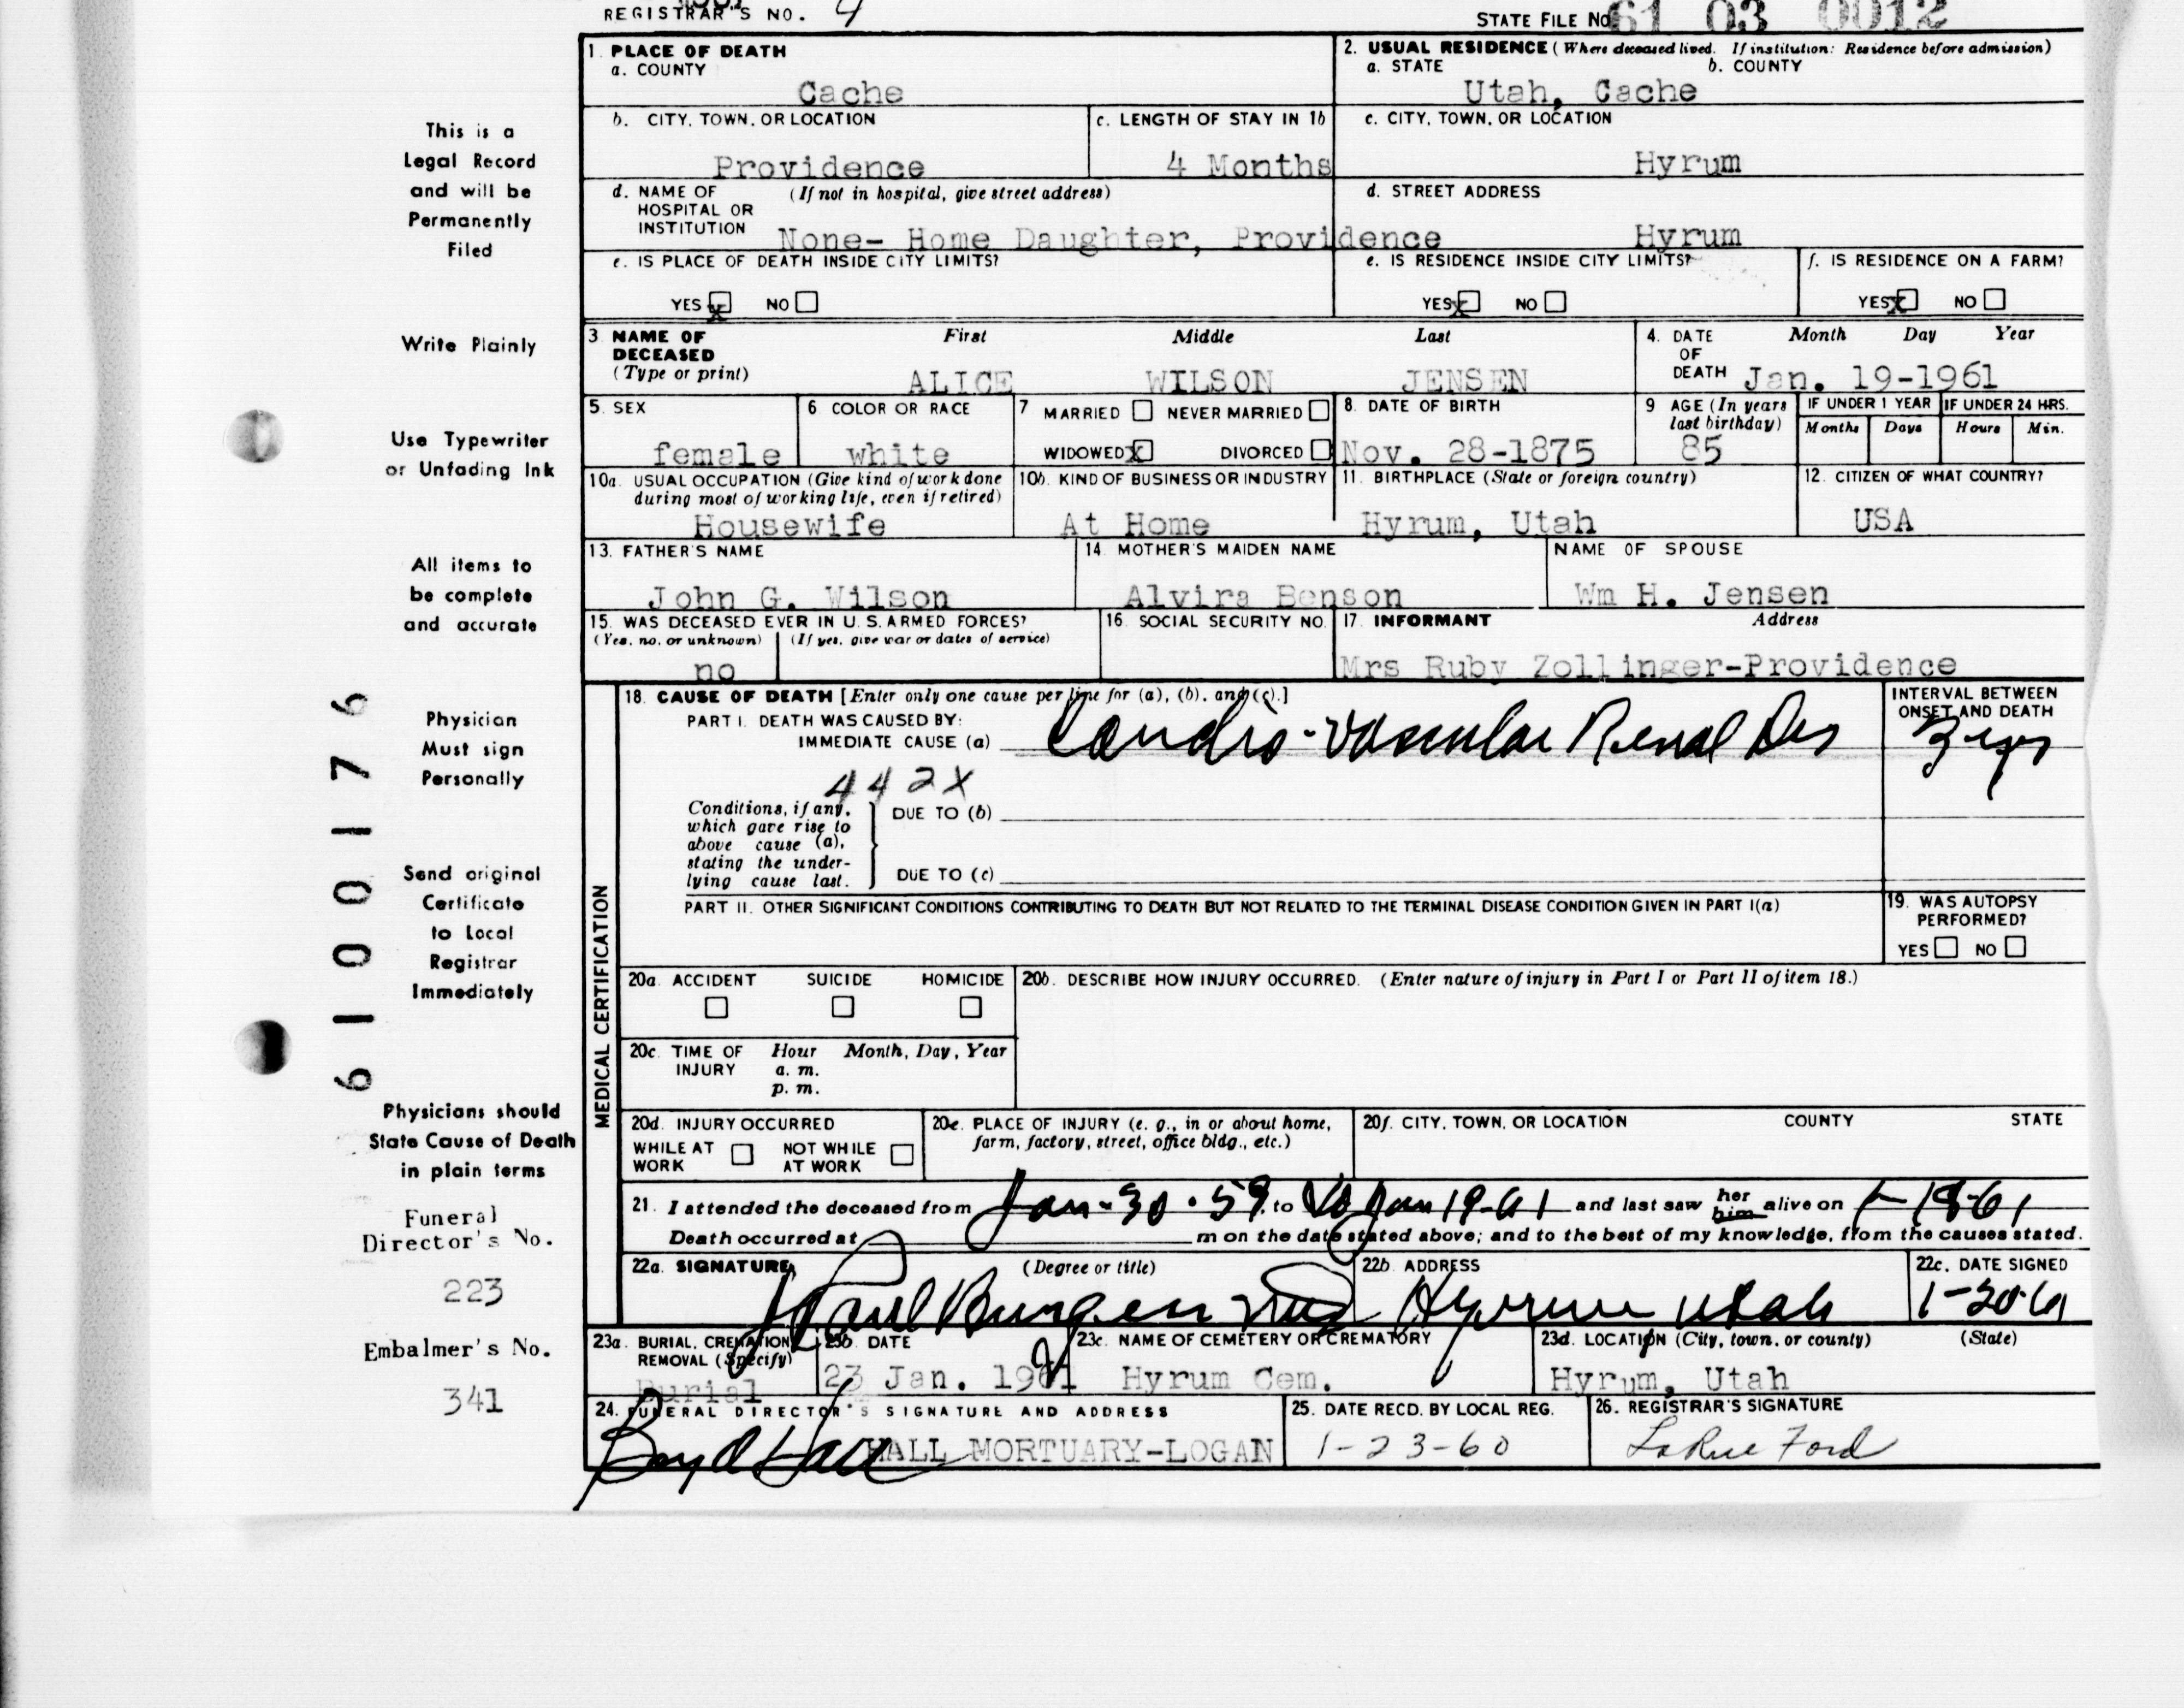 REGISTRAR'S NO. 4
STATE FILE No 61 03 0012
1. PLACE OF DEATH
a. COUNTY
Cache
2. USUAL RESIDENCE (Where deceased lived. If institution: Residence before admission)
a. STATE b. COUNTY
Utah, Cache
b. CITY, TOWN, OR LOCATION
Providence
c. LENGTH OF STAY IN 1b
4 Months
c. CITY, TOWN, OR LOCATION
Hyrum
d. NAME OF (If not in hospital, give street address)
HOSPITAL OR
INSTITUTION
None- Home Daughter, Providence
d. STREET ADDRESS
Hyrum
e. IS PLACE OF DEATH INSIDE CITY LIMITS?
YES x NO
e. IS RESIDENCE INSIDE CITY LIMITS?
YES x NO
f. IS RESIDENCE ON A FARM?
YES X NO
3 NAME OF First Middle Last
DECEASED
(Type or print)
ALICE WILSON JENSEN
4. DATE Month Day Year
OF
DEATH Jan. 19-1961
5. SEX
female
6 COLOR OR RACE
white
7 MARRIED NEVER MARRIED
WIDOWED X DIVORCED
8. DATE OF BIRTH
Nov. 28-1875
9 AGE (In years
last birthday)
85
IF UNDER 1 YEAR IF UNDER 24 HRS.
Months Days Hours Min.
10a. USUAL OCCUPATION (Give kind of work done
during most of working life, even if retired)
Housewife
10b. KIND OF BUSINESS OR INDUSTRY
At Home
11. BIRTHPLACE (State or foreign country)
Hyrum, Utah
12. CITIZEN OF WHAT COUNTRY?
USA
13. FATHER'S NAME
John G. Wilson
14. MOTHER'S MAIDEN NAME
Alvira Benson
NAME OF SPOUSE
Wm H. Jensen
15. WAS DECEASED EVER IN U. S. ARMED FORCES?
(Yes, no, or unknown) (If yes, give war or dates of service)
no
16. SOCIAL SECURITY NO.
17. INFORMANT Address
Mrs Ruby Zollinger-Providence
MEDICAL CERTIFICATION
18. CAUSE OF DEATH [Enter only one cause per line for (a), (b), and (c).]
PART I. DEATH WAS CAUSED BY:
IMMEDIATE CAUSE (a) Cardio-Vascular Renal Dis
INTERVAL BETWEEN
ONSET AND DEATH
3 yrs
442X
Conditions, if any,
which gave rise to
above cause (a),
stating the under-
lying cause last.
DUE TO (b)
DUE TO (c)
PART II. OTHER SIGNIFICANT CONDITIONS CONTRIBUTING TO DEATH BUT NOT RELATED TO THE TERMINAL DISEASE CONDITION GIVEN IN PART I(a)
19. WAS AUTOPSY
PERFORMED?
YES NO
20a. ACCIDENT SUICIDE HOMICIDE
20b. DESCRIBE HOW INJURY OCCURRED. (Enter nature of injury in Part I or Part II of item 18.)
20c. TIME OF Hour Month, Day, Year
INJURY a. m.
p. m.
20d. INJURY OCCURRED
WHILE AT NOT WHILE
WORK AT WORK
20e. PLACE OF INJURY (e. g., in or about home,
farm, factory, street, office bldg., etc.)
20f. CITY, TOWN, OR LOCATION COUNTY STATE
21. I attended the deceased from Jan-30-59, to Jan 19-61 and last saw her him alive on 1-19-61
Death occurred at m on the date stated above; and to the best of my knowledge, from the causes stated.
22a. SIGNATURE (Degree or title)
Paul Burgess MD
22b. ADDRESS
Hyrum Utah
22c. DATE SIGNED
1-20-61
23a. BURIAL, CREMATION,
REMOVAL (Specify)
Burial
23b. DATE
23 Jan. 1961
23c. NAME OF CEMETERY OR CREMATORY
Hyrum Cem.
23d. LOCATION (City, town, or county) (State)
Hyrum, Utah
24. FUNERAL DIRECTOR'S SIGNATURE AND ADDRESS
Boyd Hall HALL MORTUARY-LOGAN
25. DATE RECD. BY LOCAL REG.
1-23-60
26. REGISTRAR'S SIGNATURE
LaRue Ford
This is a
Legal Record
and will be
Permanently
Filed
Write Plainly
Use Typewriter
or Unfading Ink
All items to
be complete
and accurate
Physician
Must sign
Personally
Send original
Certificate
to Local
Registrar
Immediately
Physicians should
State Cause of Death
in plain terms
Funeral
Director's No.
223
Embalmer's No.
341
6100176